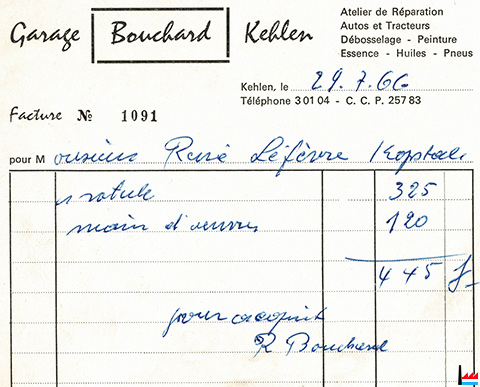 Garage Bouchard Kehlen
Atelier de Réparation
Autos et Tracteurs
Débosselage - Peinture
Essence - Huiles - Pneus
Kehlen, le 29.7.66
Téléphone 3 01 04 - C. C. P. 257 83
Facture № 1091
pour Monsieur René Léfèvre Kopstal
1 rotule 325
main d'oeuvre 120
445 f
pour acquit
R Bouchard